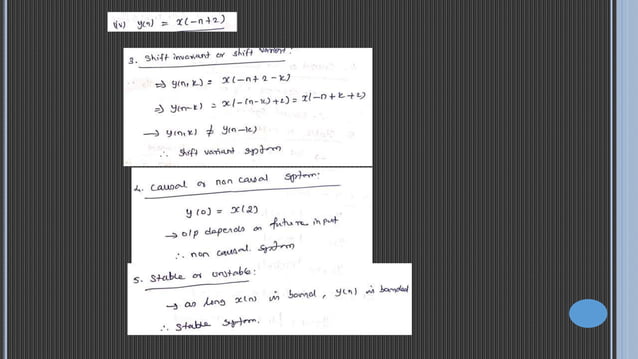 iv) y(n) = x(-n+2)
3. Shift invariant or shift variant:
⇒ y(n,k) = x(-n+2-k)
⇒ y(n-k) = x(-(n-k)+2) = x(-n+k+2)
→ y(n,k) ≠ y(n-k)
∴ shift variant system
4. Causal or non causal system:
y(0) = x(2)
→ o/p depends on future input
∴ non causal system
5. Stable or unstable:
→ as long x(n) is bound, y(n) is bounded
∴ Stable system.